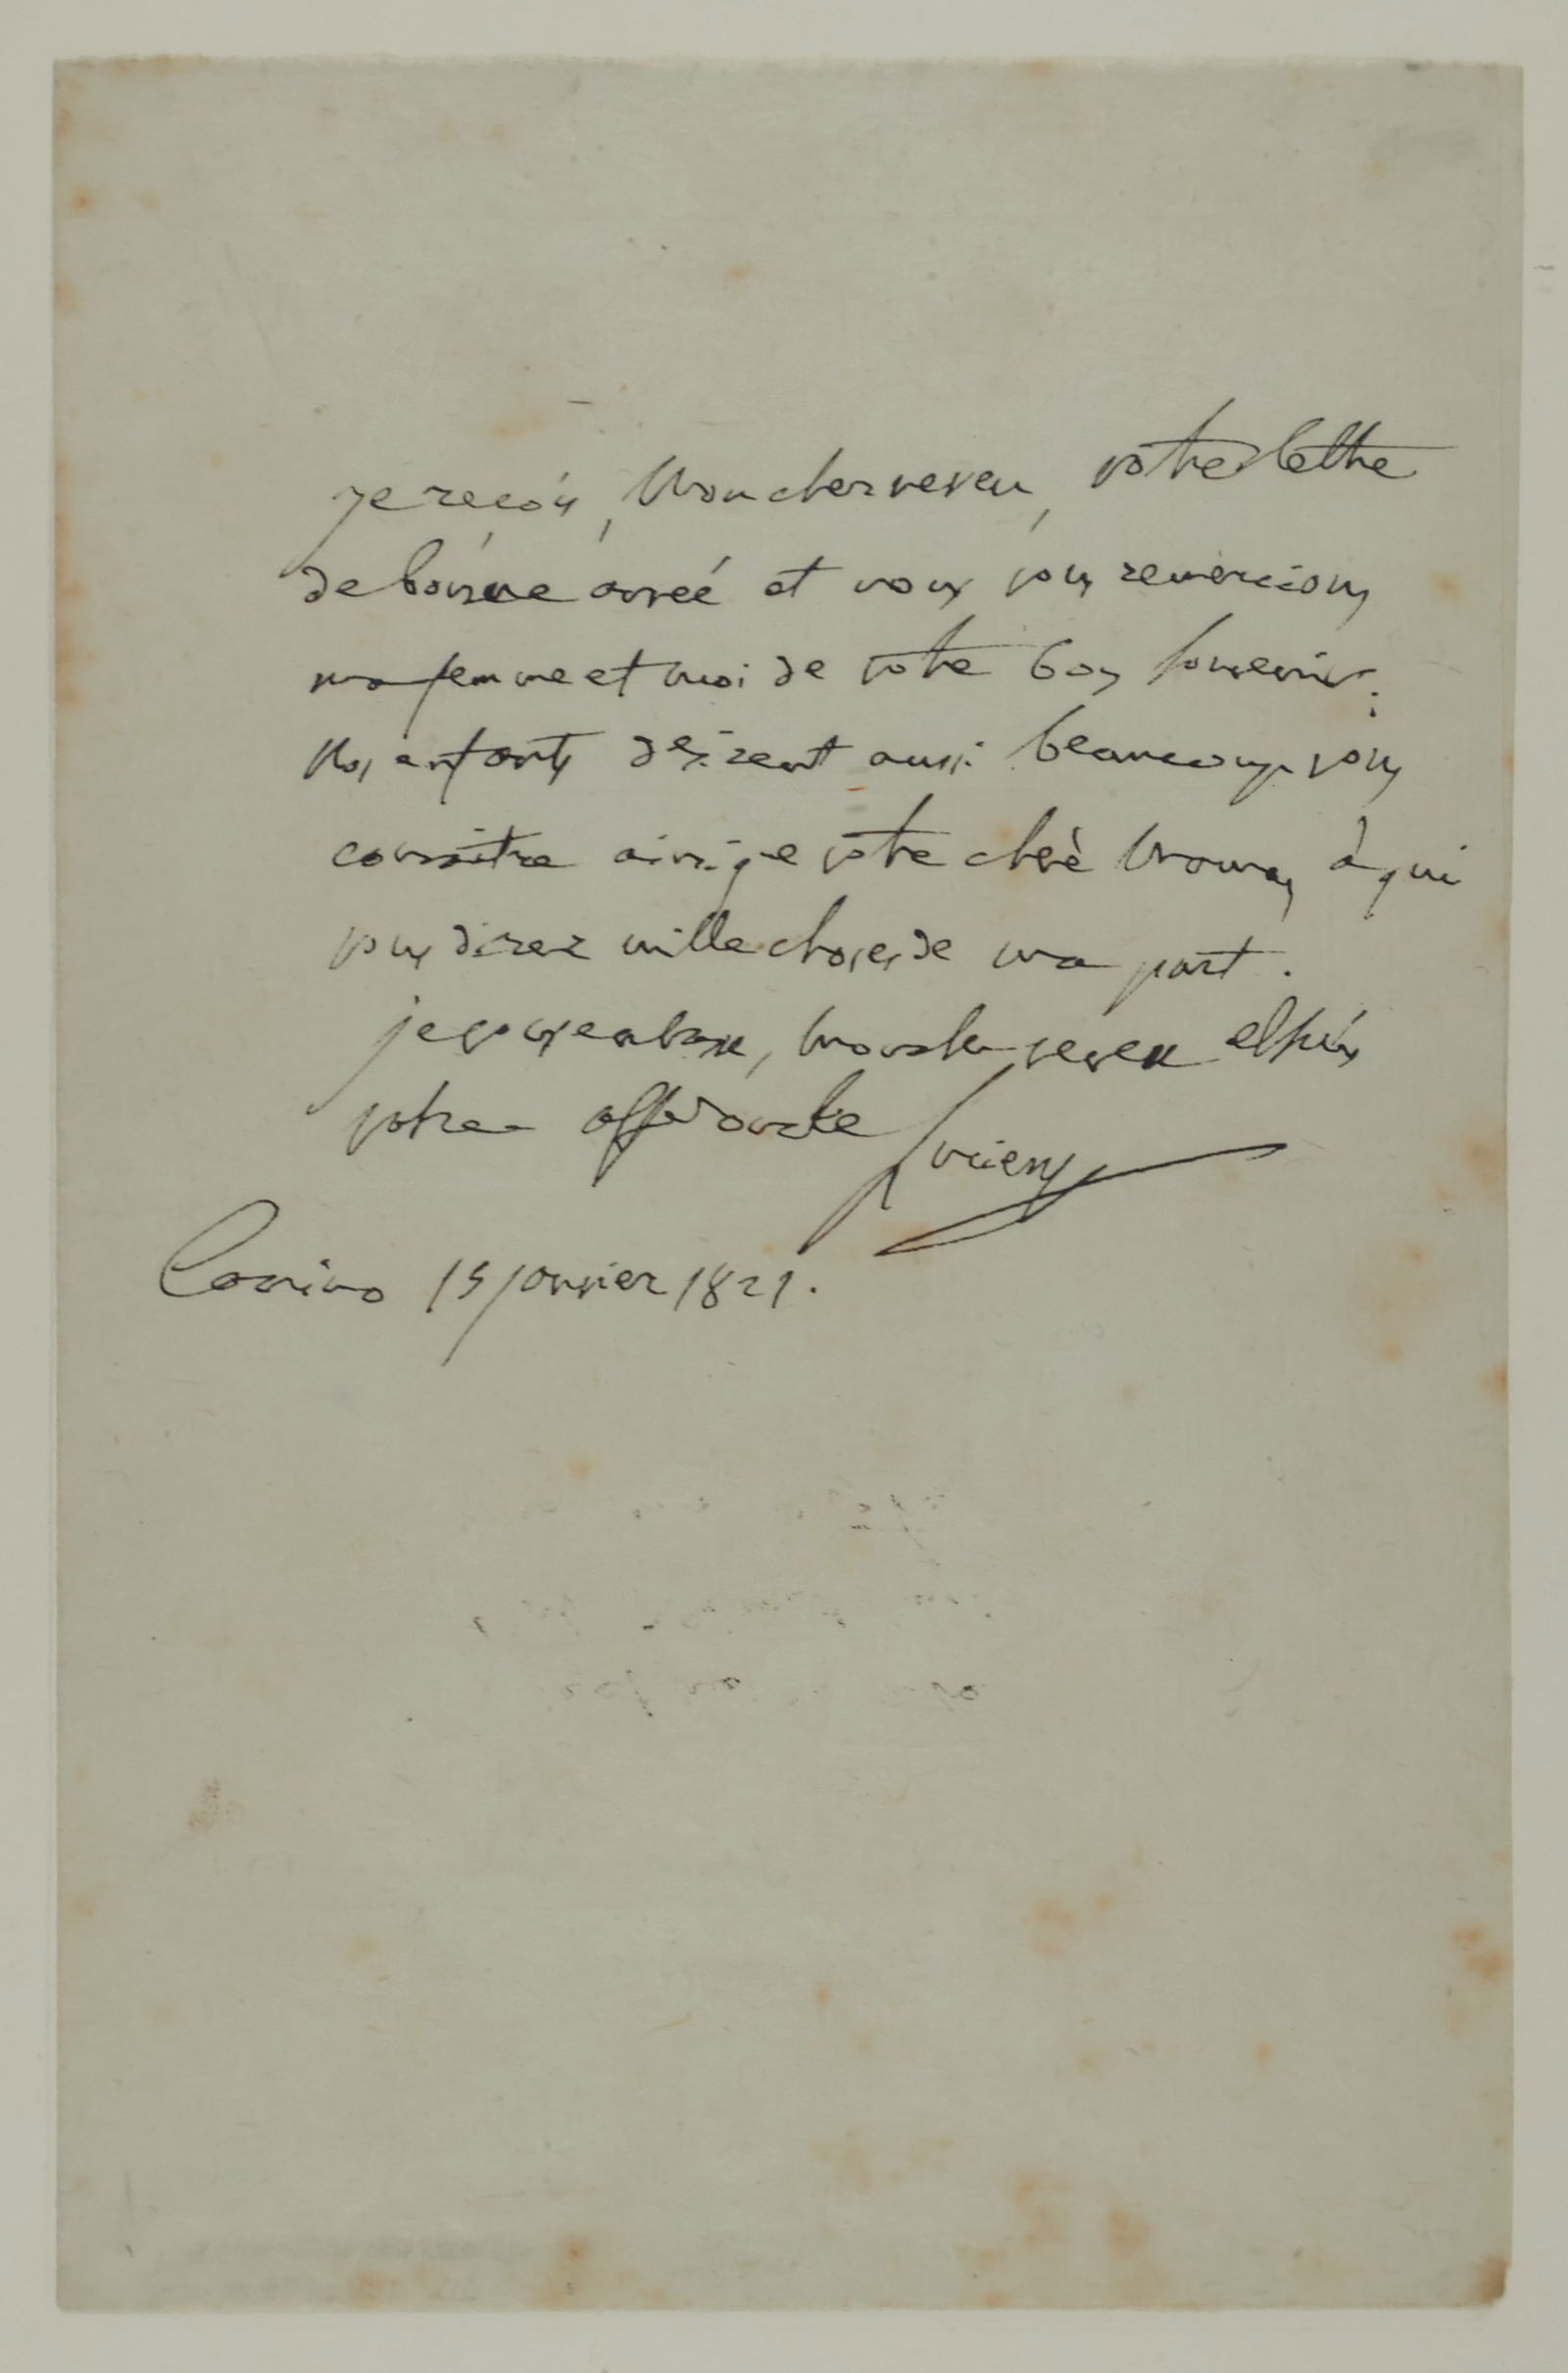 je reçois, Mon cher neveu, votre lettre
de bonne année et nous vous remercions
ma femme et moi de votre bon souvenir;
Nos enfants désirent aussi beaucoup vous
connoitre ainsi que votre chère Maman à qui
vous direz mille choses de ma part.
je vous embrasse, mon cher neveu et suis
votre affectionné
Lucien
Canino 15 janvier 1821.